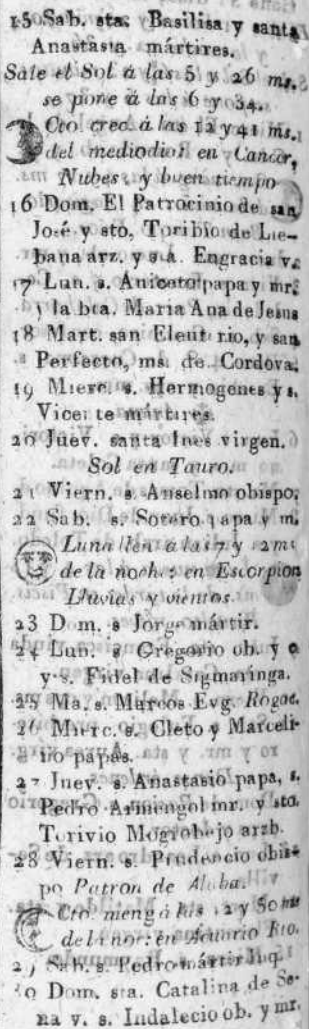 15 Sab. sta. Basilisa y santa
Anastasia mártires.
Sale el Sol á las 5 y 26 ms.
se pone á las 6 y 34.
Cto crec. á las 12 y 41 ms.
del mediodia: en Cancer,
Nubes y buen tiempo
16 Dom. El Patrocinio de san
José y sto. Toribio de Lie-
bana arz. y sta. Engracia v.
17 Lun. s. Aniceto papa y mr.
y la bta. Maria Ana de Jesus
18 Mart. san Eleuterio, y san
Perfecto, ms. de Cordova.
19 Mierc. s. Hermogenes y s.
Vicente mártires.
20 Juev. santa Ines virgen.
Sol en Tauro.
21 Viern. s. Anselmo obispo.
22 Sab. s. Sotero papa y m.
Luna llen. á las 7 y 2 ms
de la noch.: en Escorpion
Lluvias y vientos.
23 Dom. s Jorge mártir.
24 Lun. s Gregorio ob. y
y s. Fidel de Sigmaringa.
25 Ma. s. Marcos Evg. Rogac.
26 Mierc. s. Cleto y Marceli-
no papas.
27 Juev. s. Anastasio papa, s.
Pedro Armengol mr. y sto.
Torivio Mogrobejo arzb.
28 Viern. s. Prudencio obis-
po Patron de Alaba.
Cto. meng á las 12 y 50 ms
de la nor: en Acuario Rio.
29 Sab. s. Pedro mártir Inq.
30 Dom. sta. Catalina de Se-
na v. s. Indalecio ob. y mr.